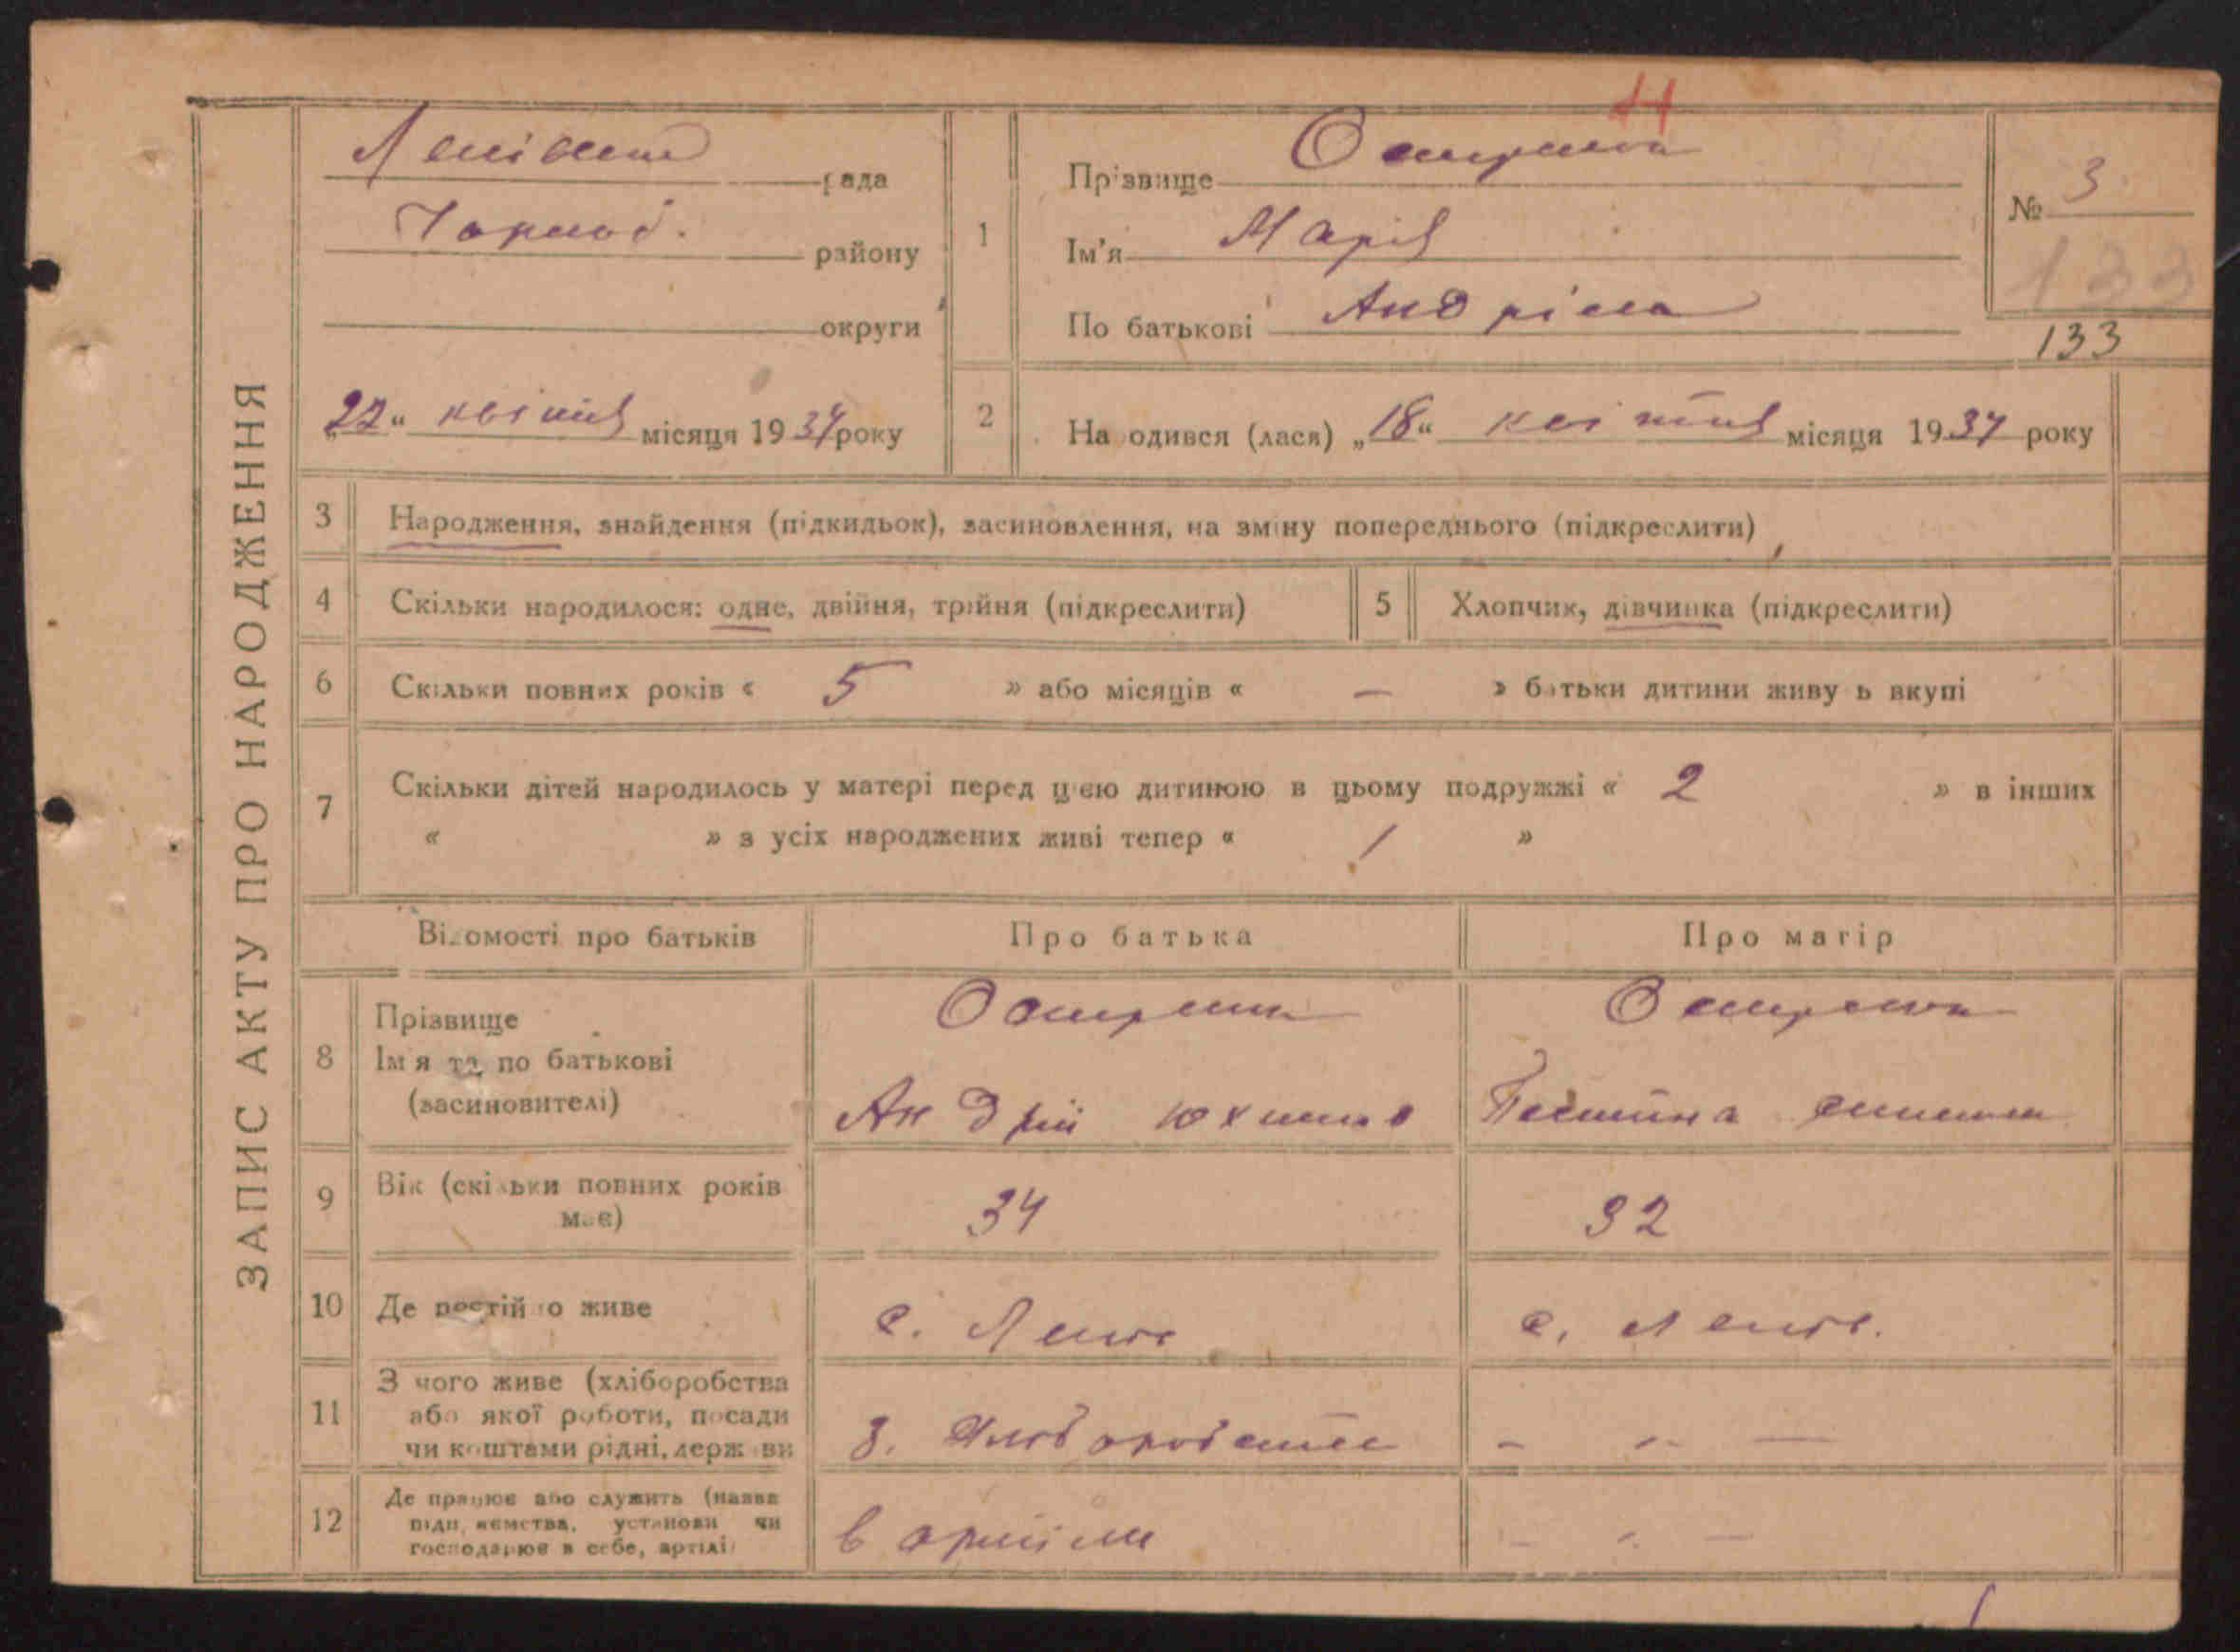 ЗАПИС АКТУ ПРО НАРОДЖЕННЯ
рада
Чорноб. району
округи
"22" квітня місяця 1934 року
1
Прізвище
Ім'я Марія
По батькові Андріївна
№ 3
133
133
2 Народився (лася) „18" квітня місяця 1934 року
3 Народження, знайдення (підкидьок), засиновлення, на зміну попереднього (підкреслити)
4 Скільки народилося: одне, двійня, трійня (підкреслити)
5 Хлопчик, дівчинка (підкреслити)
6 Скільки повних років « 5 » або місяців « — » батьки дитини живуть вкупі
7 Скільки дітей народилось у матері перед цією дитиною в цьому подружжі « 2 » в інших
« » з усіх народжених живі тепер « 1 »
Відомості про батьків
Про батька
Про матір
8 Прізвище
Ім'я та по батькові
(засиновителі)
Андрій
9 Вік (скільки повних років
має)
34
32
10 Де постійно живе
с.
с.
11 З чого живе (хліборобства
або якої роботи, посади
чи коштами рідні, держави
з. Хліборобства
– " —
12 Де працює або служить (назва
підприємства, установи чи
господарює в себе, артілі)
в артілі
– " –